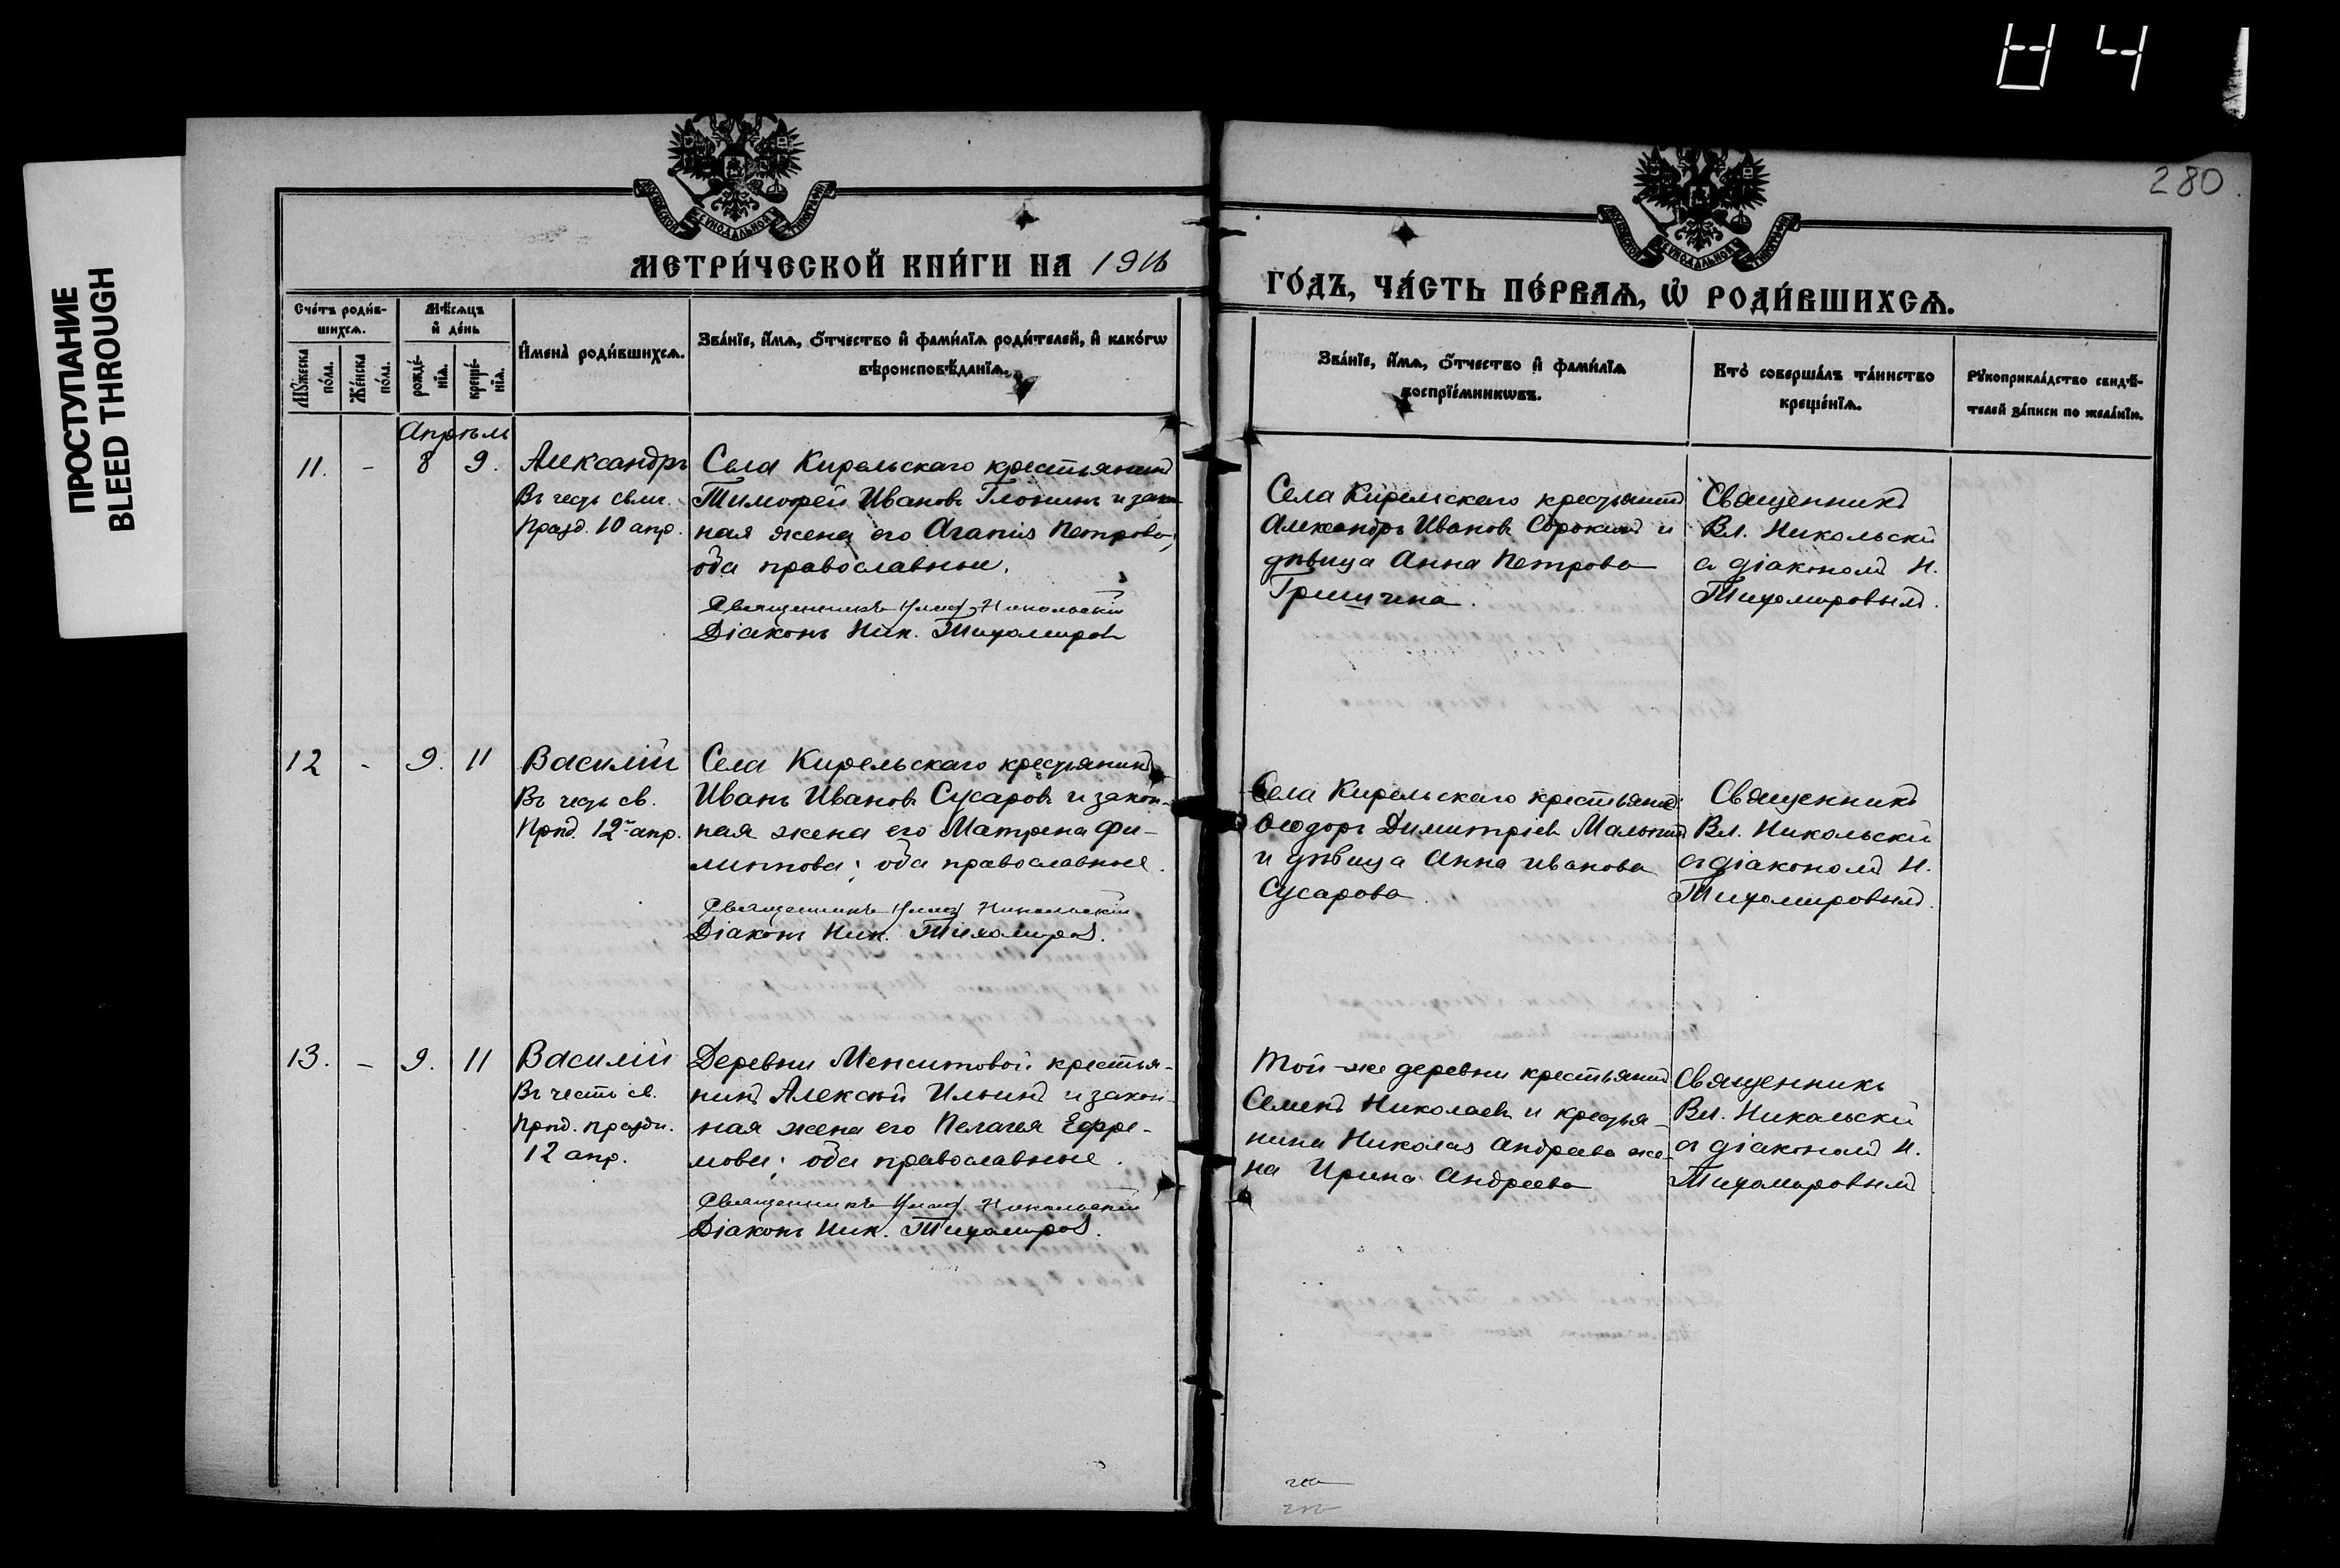 ПРОСТУПАНИЕ
BLEED THROUGH
280.
МЕТРИ́ЧЕСКОЙ КНИ́ГИ НА 1916
ГО́ДЪ, ЧА́СТЬ ПЕ́РВАѦ, Ѡ҆ РОДИ́ВШИХСѦ.
Сче́тъ роди́в-
шихсѧ.
Мѹ́жеска
по́ла.
Же́нска
по́ла.
Мѣ́сѧцъ
и҆ де́нь
рожде́-
нїѧ.
креще́-
нїѧ.
И҆мена̀ роди́вшихсѧ.
Зва́нїе, и҆́мѧ, ѻ҆́тчество и҆ фами́лїѧ роди́телей, и҆ како́гѡ
вѣроисповѣ́данїѧ.
Зва́нїе, и҆́мѧ, ѻ҆́тчество и҆ фами́лїѧ
воспрїе́мникѡвъ.
Кто̀ соверша́лъ та́инство
креще́нїѧ.
Рꙋкоприкла́дство свидѣ́-
телей за́писи по жела́нїю.
Апрѣль
11. - 8 9. Александръ
Въ честь свмч.
Празд. 10 апр.
Села Кирельскаго крестьянинъ
Тимофей Ивановъ Глонинъ и закон-
ная жена его Агапія Петрова,
оба православные.
Священникъ Влад. Никольскій
Діаконъ Ник. Тихомировъ
Села Кирельскаго крестьянинъ
Александръ Ивановъ Сорокинъ и
дѣвица Анна Петрова
Гришина.
Священникъ
Вл. Никольскій
съ діакономъ Н.
Тихомировымъ.
12 - 9. 11 Василій
Въ честь св.
Прпд. 12 апр.
Села Кирельскаго крестьянинъ
Иванъ Ивановъ Сусаровъ и закон-
ная жена его Матрена Фи-
липпова; оба православные.
Священникъ Влад. Никольскій
Діаконъ Ник. Тихомировъ.
Села Кирельскаго крестьянинъ
Ѳеодоръ Димитріевъ Малыгинъ
и дѣвица Анна Иванова
Сусарова.
Священникъ
Вл. Никольскій
съ діакономъ Н.
Тихомировымъ.
13. - 9. 11 Василій
Въ честь св.
Прпд. праздн.
12 апр.
Деревни Менситовой крестья-
нинъ Алексѣй Ильинъ и закон-
ная жена его Пелагея Ефре-
мова; оба православные.
Священникъ Влад. Никольскій
Діаконъ Ник. Тихомировъ.
Той-же деревни крестьянинъ
Семенъ Николаевъ и крестья-
нина Николая Андреева же-
на Ирина Андреева
Священникъ
Вл. Никольскій
съ діакономъ Н.
Тихомировымъ